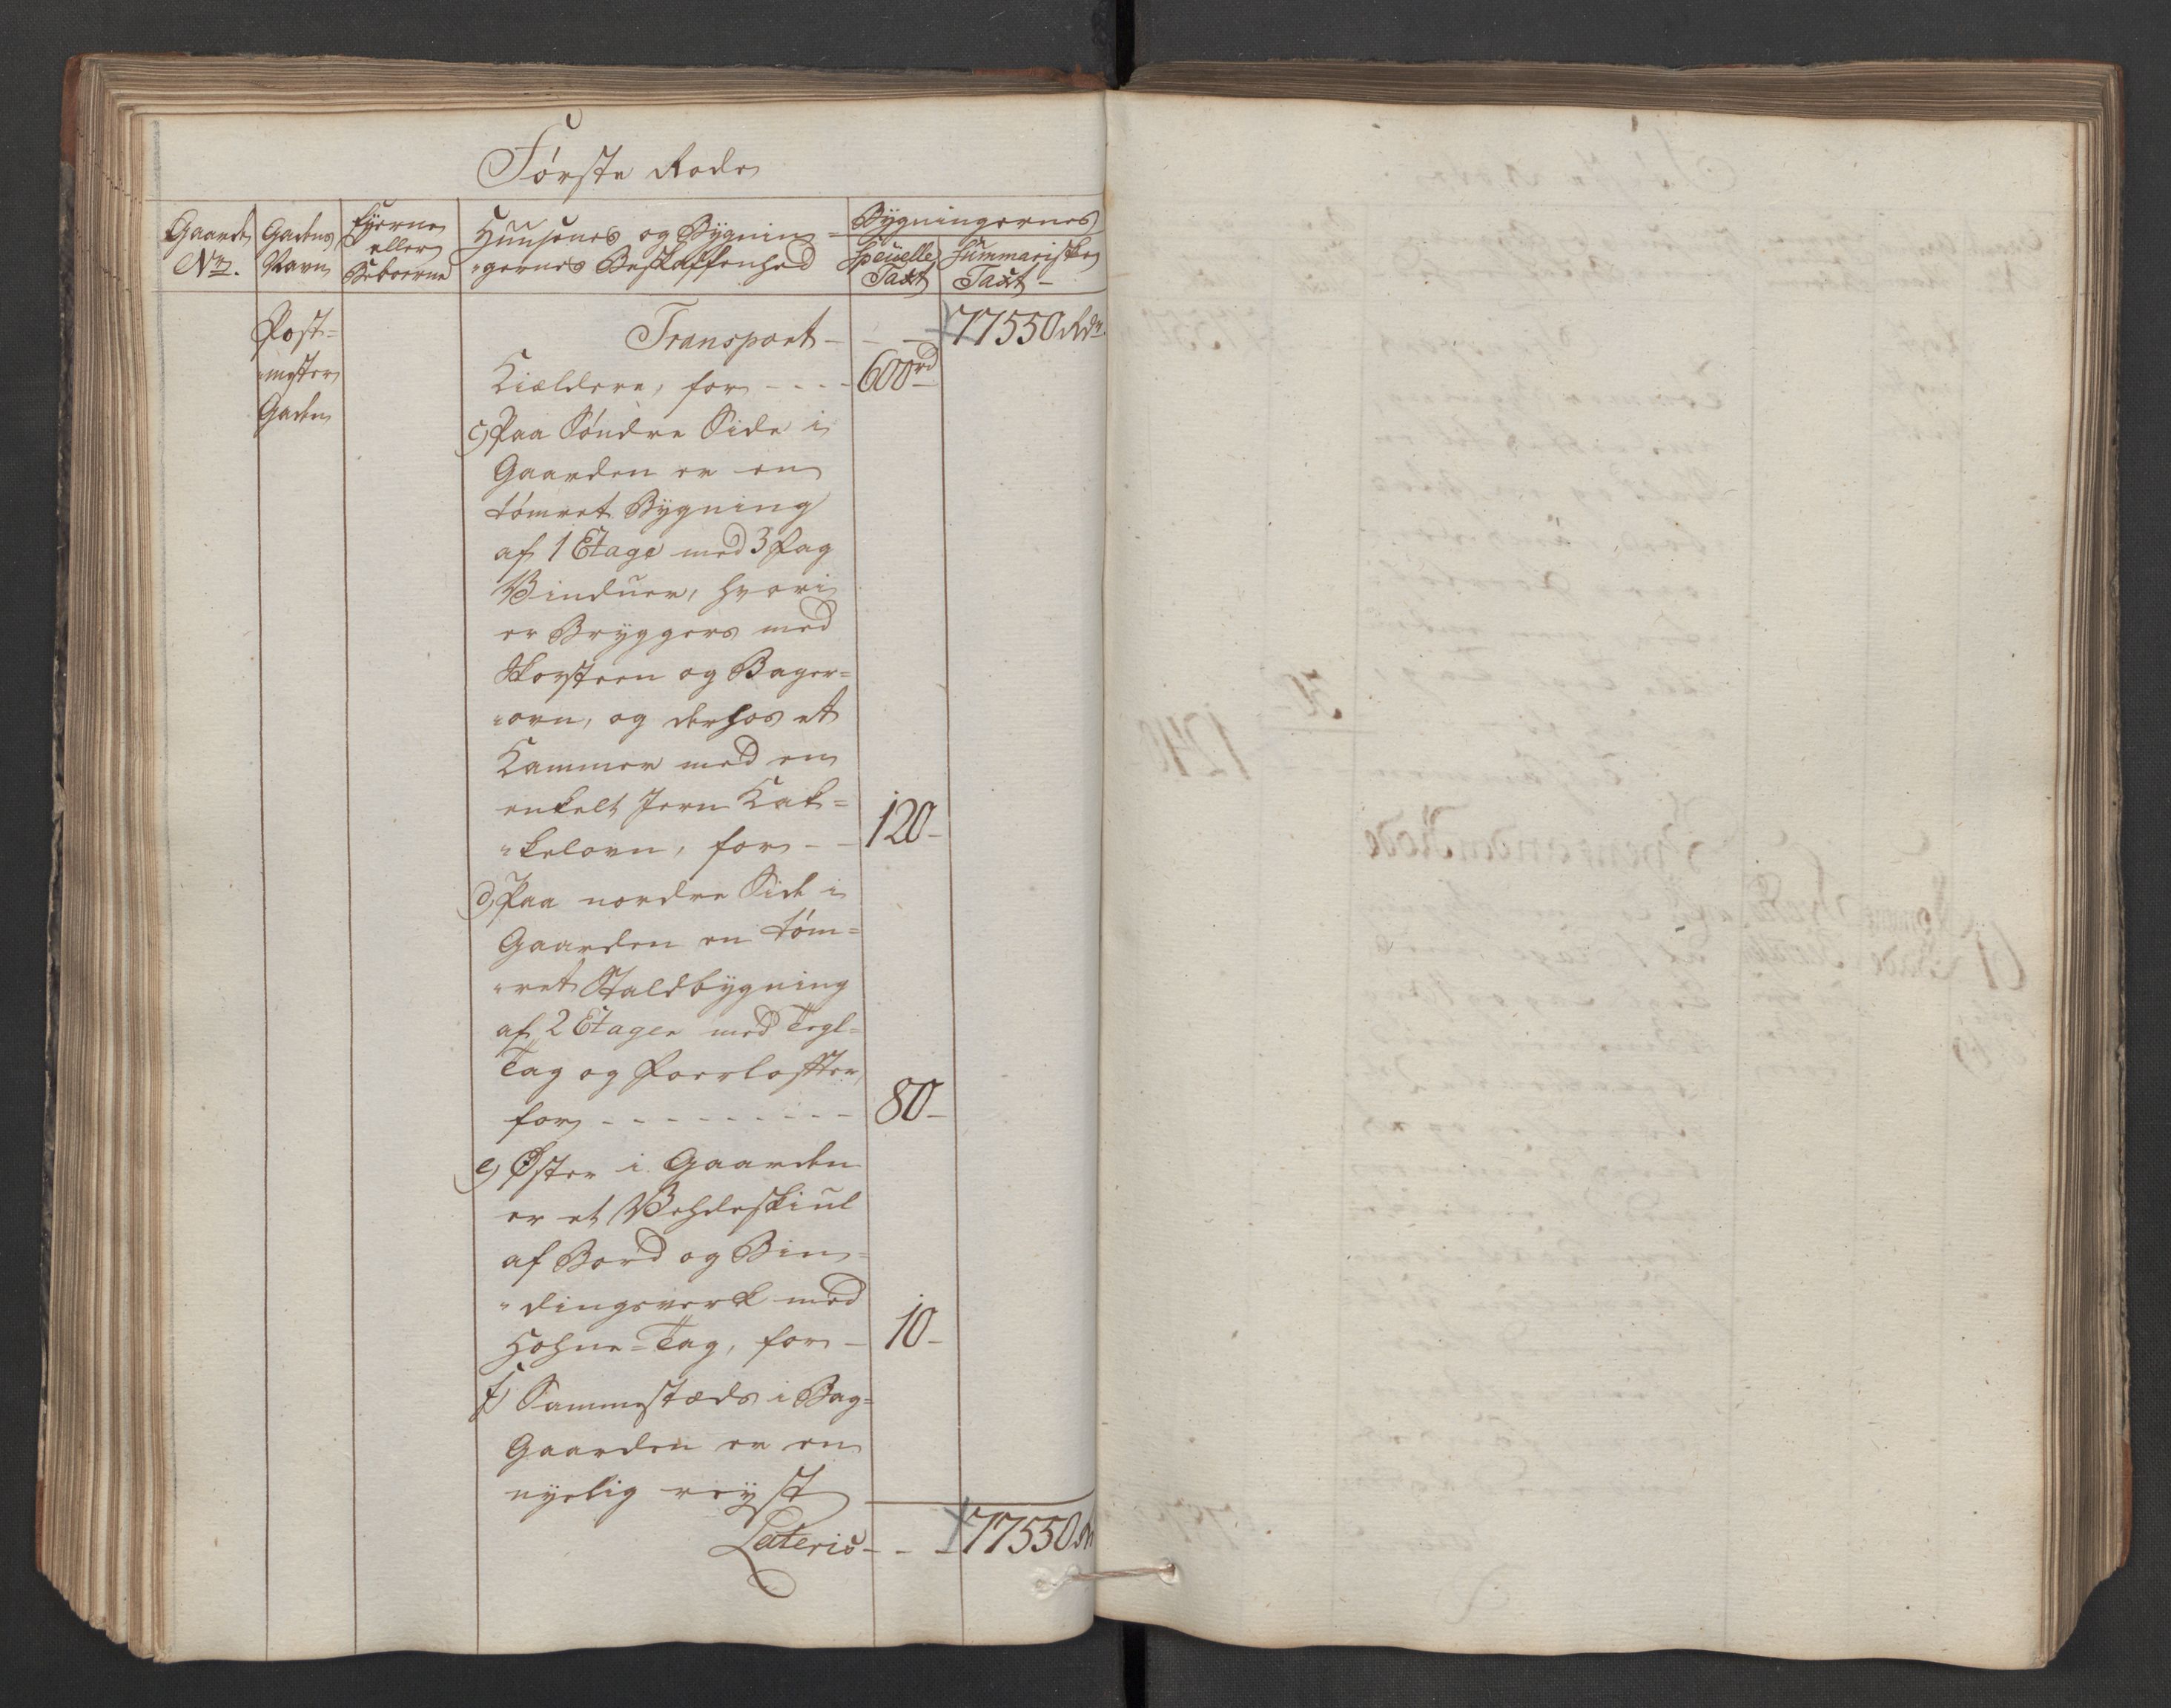 Første Rode
Gaards No.
Gadens Navn
Eyerne eller Beboerne
Huusenes og Bygnin=
=gernes Beskaffenhed
Bygningernes
Speuelle Taxt
Summariske Taxt
Post=
=mester
Gaden
Transport - - - 77550 Rdr.
Kieldere, for - - - - 600rd
c) Paa Søndre Side i
Gaarden er en
tømret Bygning
af 1 Etage med 3 Fag
Vinduer, hvori
er Bryggers med
Skorsteen og Bager=
=ovn, og derhos et
Kammer med en
enkelt Jern Kak=
=kelovn, for - - 120-
d) Paa nordre Side i
Gaarden en tøm=
=ret Staldbygning
af 2 Etager med Tegl=
Tag og Foerloftter,
for - - - - - - - - - 80-
e) Øster i Gaarden
er et Vehdeskiul
af Bord og Bin=
=dingsverk med
Hohne=Tag, for - 10-
f) Sammestæds i Bag=
Gaarden er en
nyelig reyst
Lateris - - - 77550 Rdr